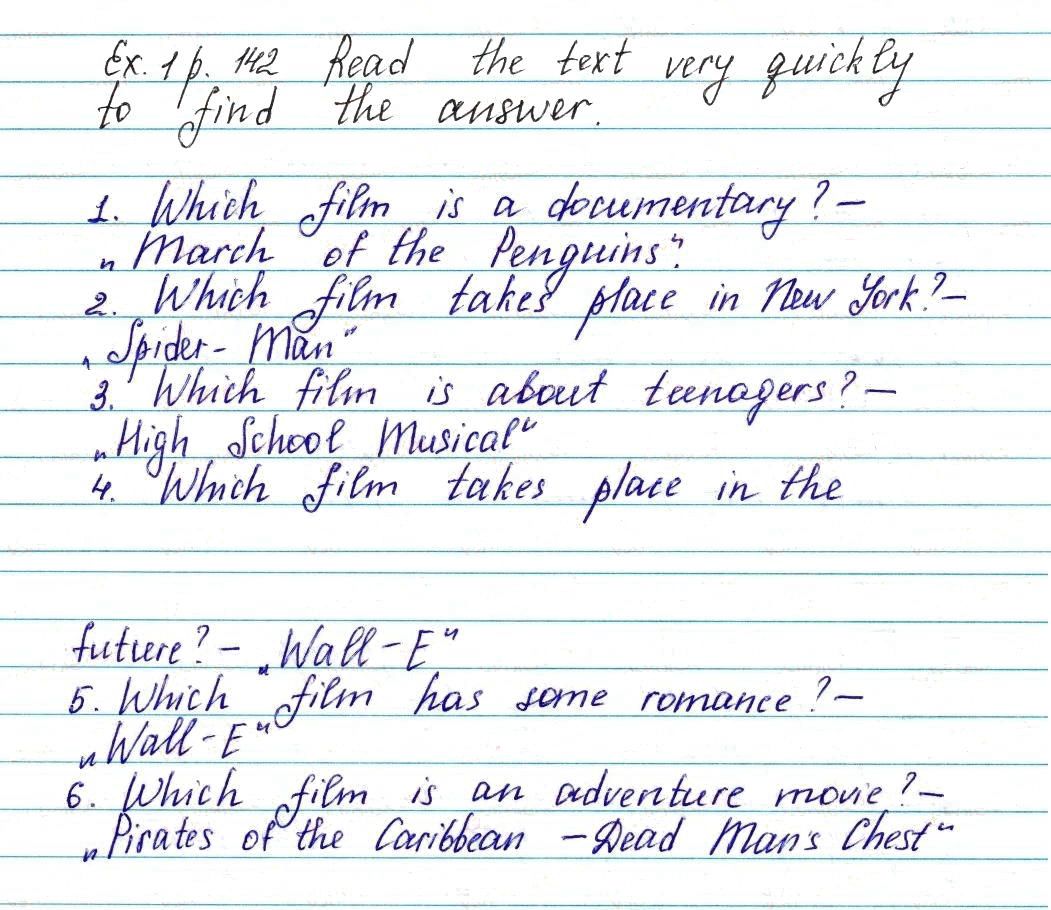 Ex. 1 p. 142 Read the text very quickly
to find the answer.
1. Which film is a documentary? –
„March of the Penguins".
2. Which film takes place in New York? –
„Spider-Man"
3. Which film is about teenagers? –
„High School Musical"
4. Which film takes place in the
future? – „Wall-E"
5. Which film has some romance? –
„Wall-E"
6. Which film is an adventure movie? –
„Pirates of the Caribbean – Dead Man's Chest"